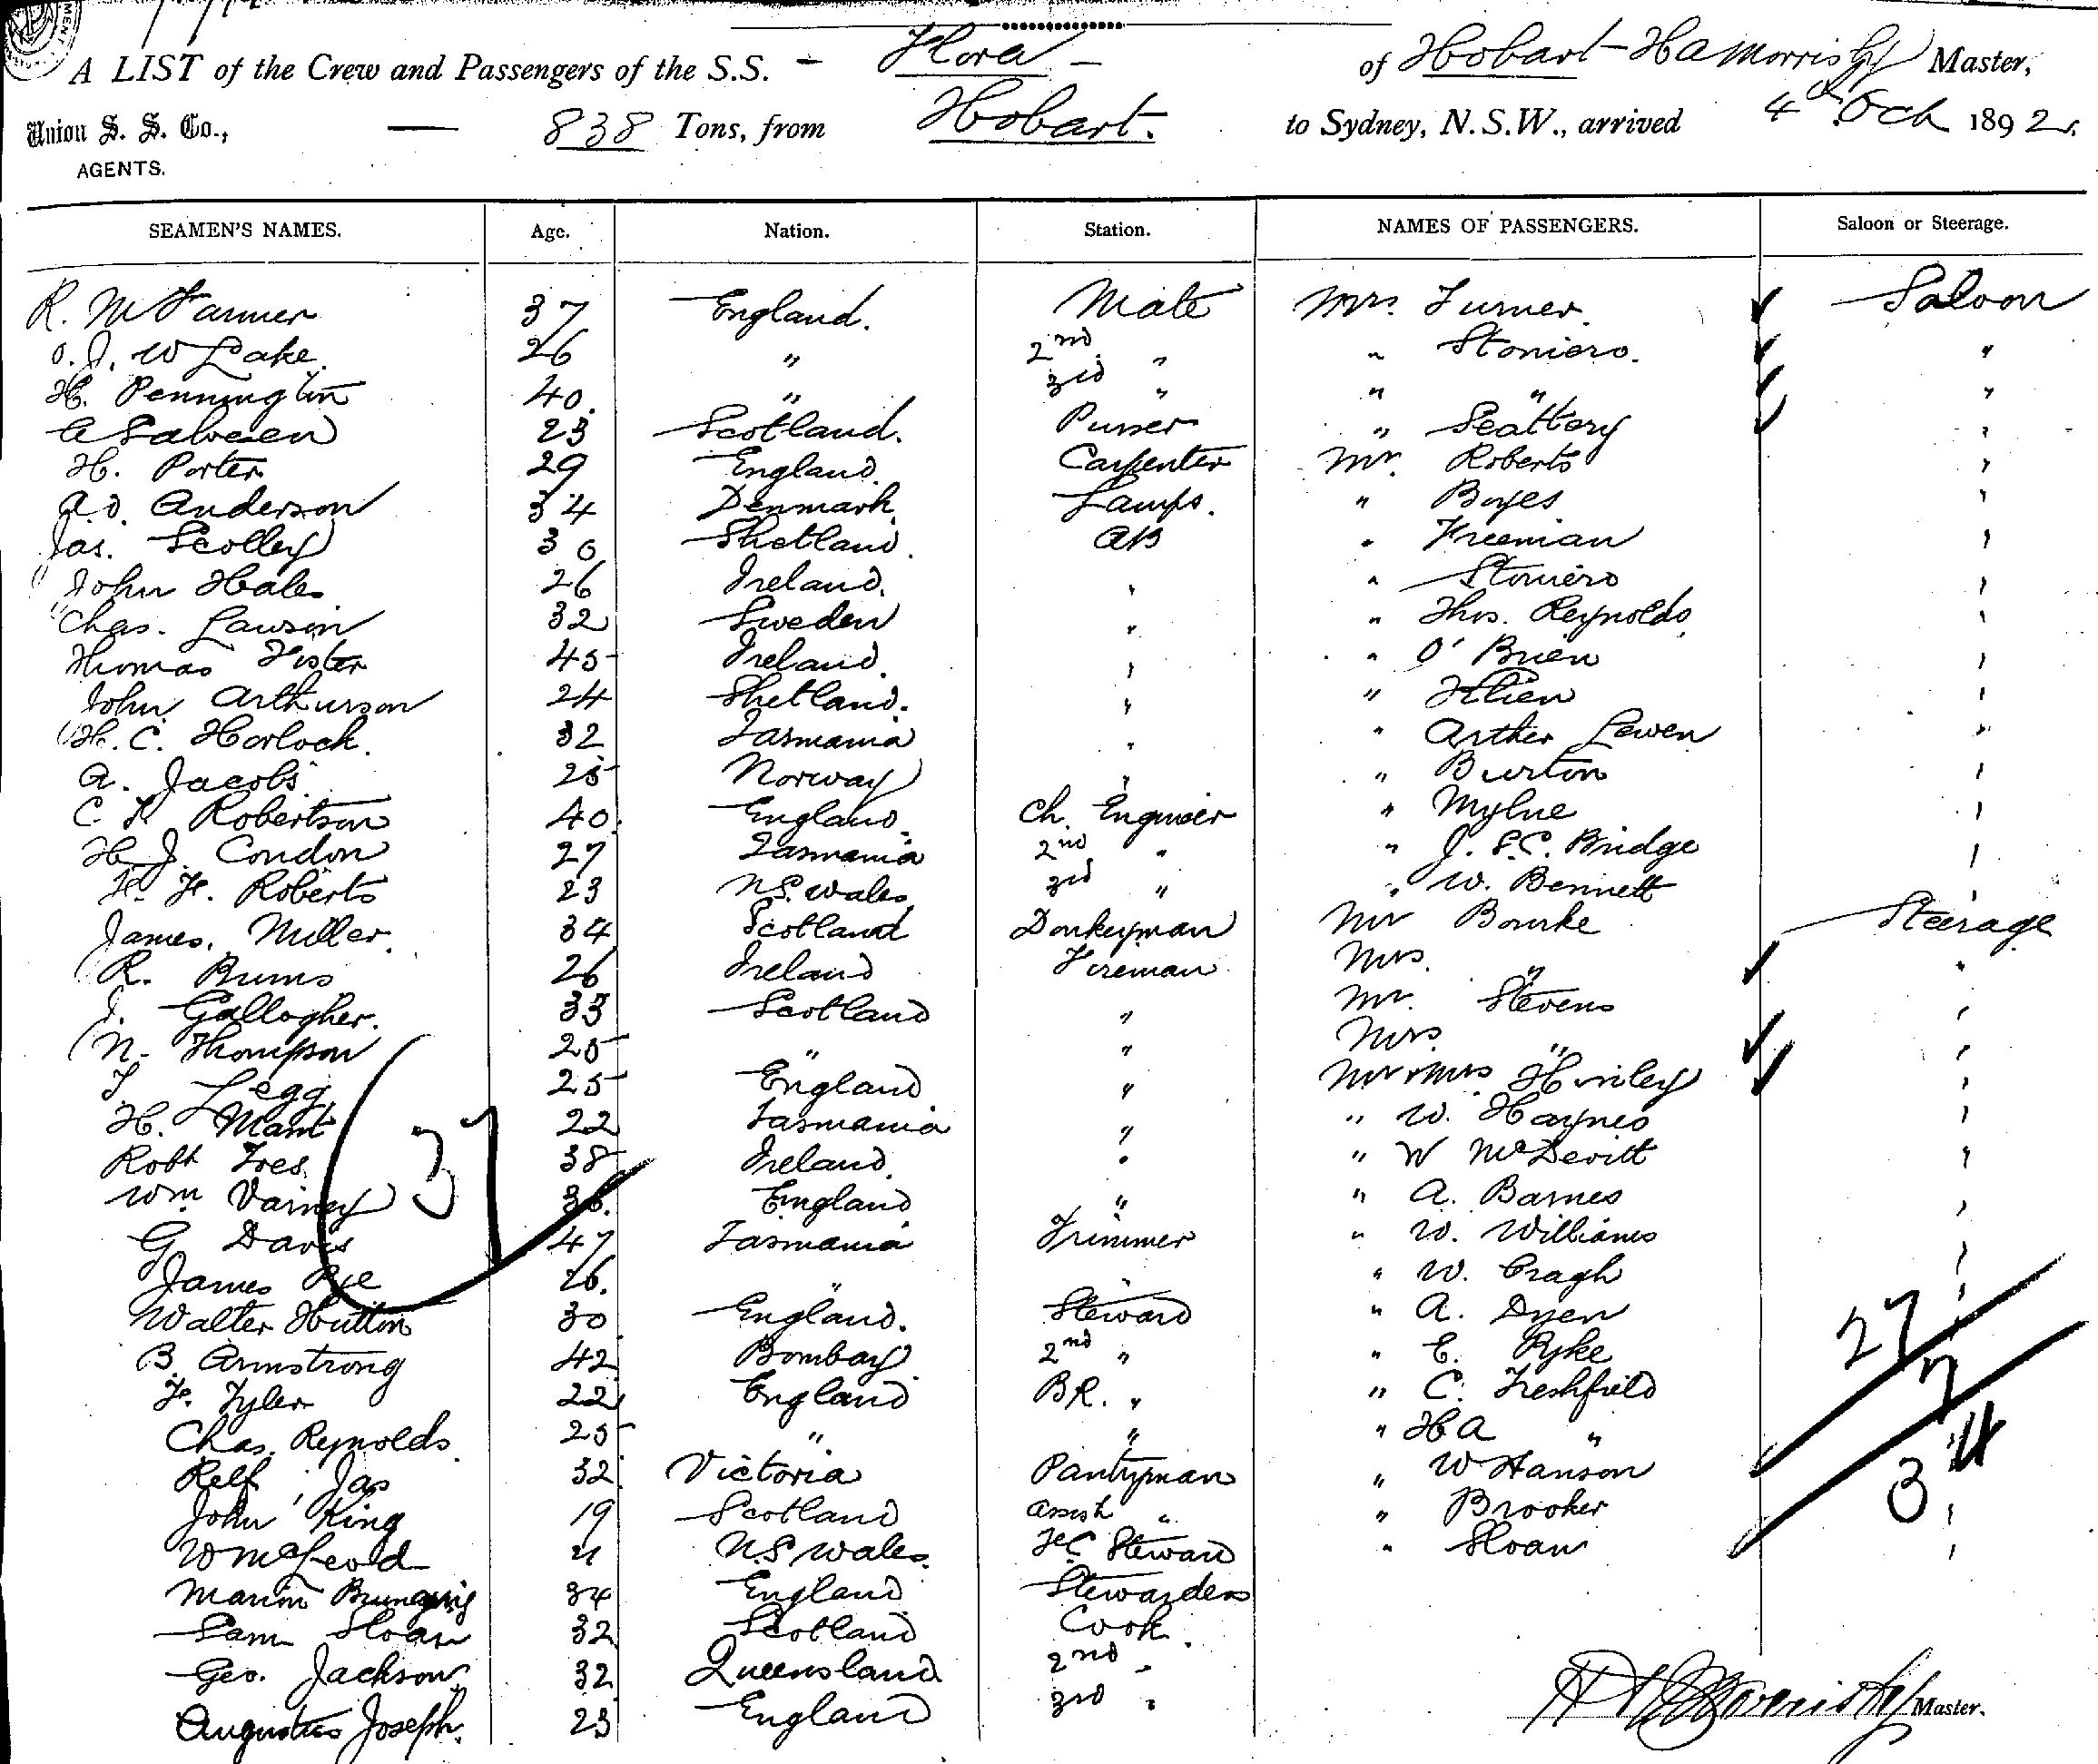 A LIST of the Crew and Passengers of the S.S. - Flora - of Hobart - HA Morrisby Master,
Union S. S. Co., — 838 Tons, from Hobart. to Sydney, N.S.W., arrived 4th Oct 1892.
AGENTS.
SEAMEN'S NAMES. Age. Nation. Station. NAMES OF PASSENGERS. Saloon or Steerage.
R. M Farmer 37 England. Mate Mrs. Turner. Saloon
O. J. W Lake 26 " 2nd " " Stoniers. "
H. Pennington 40. " 3rd " " " "
A Salvesen 23 Scotland. Purser " Scattery "
H. Porter 29 England. Carpenter Mr. Roberts "
A.O. Anderson 34 Denmark. Lamps. " Boyes "
Jas. Scolley 30 Shetland. AB " Freeman "
John Hales 26 Ireland. " " Stoniers "
Chas. Lawson 32 Sweden " " Thos. Reynolds "
Thomas Foster 45 Ireland. " " O'Brien "
John Arthurson 24 Shetland. " " "
H. C. Horlock. 32 Tasmania " " Arther Lewen "
A. Jacobs 25 Norway " " Burton "
C. F. Robertson 40. England. Ch. Engineer " Mylne "
H. J. Condon 27 Tasmania 2nd " " J. S.C. Bridge "
F. H. Roberts 23 N.S. Wales 3rd " " W. Bennett "
James. Miller. 34 Scotland Donkeyman Mr Bourke Steerage
R. Burns 26 Ireland Fireman Mrs. " "
J. Gallagher. 33 Scotland " Mr. Stevens "
N. Thompson 25 " " Mrs. " "
T. Legg 25 England " Mr & Mrs Hurley "
H. Mant 22 Tasmania " " W. Haynes "
Robt 38 Ireland. " " W McDevitt "
Wm Varney 36. England " " A. Barnes "
G Davis 47 Tasmania Trimmer " W. Williams "
James Rye 26. " " " W. Cragh "
Walter Hutton 30 England. Steward " A. Dyer "
B. Armstrong 42 Bombay 2nd " " E. Pyke "
F. Tyler 22 England BR. " " C. Freshfield
Chas. Reynolds 25 " " " HA "
Relf, Jas 32 Victoria Pantryman " W Hanson
John King 19 Scotland Assist " " Brooker "
W McLeod 21 N.S Wales. F.C. Steward " Sloan "
Marion 34 England Stewardess
Sam Sloan 32 Scotland Cook.
Geo. Jackson 32 Queensland 2nd "
Augustus Joseph. 23 England 3rd "
37
27
7
34
HA Morrisby Master.